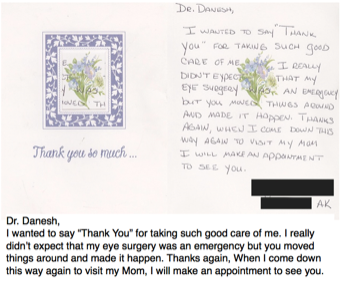 Thank you so much...
De. Danesh,
I wanted to say "Thank
you" for taking such good
care of me. I really
didn't expect that my
eye surgery was an emergency
but you moved things around
and made it happen. Thanks
again, when I come down this
way again to visit my mom
I will make an appointment
to see you.
AK
Dr. Danesh,
I wanted to say "Thank You" for taking such good care of me. I really
didn't expect that my eye surgery was an emergency but you moved
things around and made it happen. Thanks again, When I come down
this way again to visit my Mom, I will make an appointment to see you.